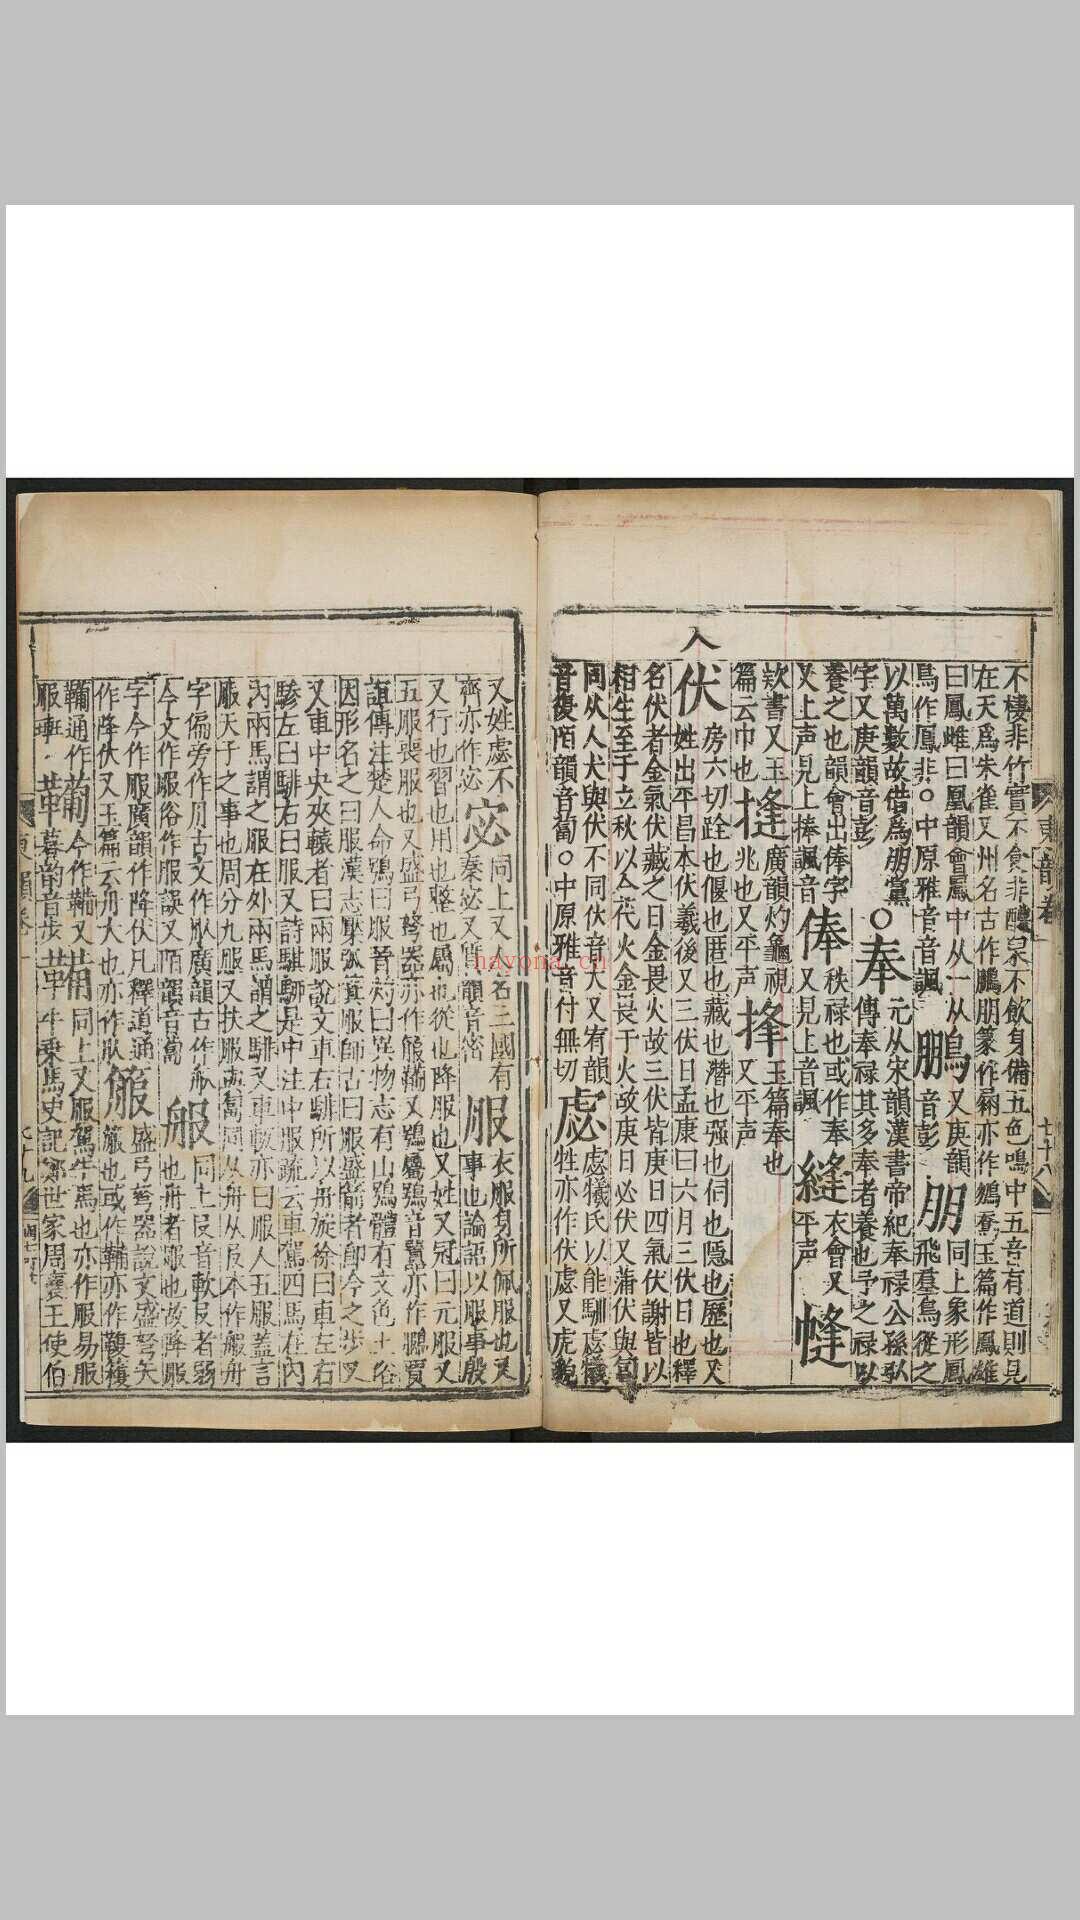 不棲非竹實不食非醴泉不飲身備五色鳴中五音有道則見
在天爲朱雀又州名古作鵬朋篆作 亦作鵷 玉篇作鳳雄
曰鳳雌曰凰韻會鳳中从一从鳥又庚韻
鳥作鳳非○中原雅音音諷 鵬音彭 朋同上象形鳳飛羣鳥從之
以萬數故借爲朋黨○奉元从宋韻漢書帝紀奉禄公孫弘
字又庚韻音彭 傳奉禄其多奉者養也予之禄以
養之也韻會出俸字 俸秩禄也或作奉 縫衣會又
又上声見上捧諷音 又見上音諷 平声
㡖
欵書又玉 㨙廣韻灼龜視 捀玉篇奉也
篇云巾也 兆也又平声 又平声
入
伏房六切跧也偃也匿也藏也潛也强也伺也隱也歷也又
姓出平昌本伏羲後又三伏日孟康曰六月三伏日也釋
名伏者金氣伏藏之日金畏火故三伏皆庚日四氣伏謝皆以
相生至于立秋以金代火金畏于火故庚日必伏又蒲伏與匐
同从人犬與伏不同伏音大又宥韻 虙虙犧氏以能馴虙犧
音復陌韻音蔔○中原雅音付無切 牲亦作伏虙又虎貌
又姓虙不 宓同上又人名三國有 服衣服身所佩服也又
齊亦作宓 秦宓又質韻音密 事也論語以服事殷
又行也習也用也整也屬也從也降服也又姓又冠曰元服又
五服喪服也又盛弓弩器亦作箙鞴又鵩鳥鵩音 亦作鵩賈
誼傳注楚人命鴞曰服晉灼曰異物志有山鴞體有文色土俗
因形名之曰服漢志檿弧箕服師古曰服盛箭者即今之步叉
又車中央夾轅者曰兩服說文車右騑所以舟旋徐曰車左右
驂左曰騑右曰服又詩騏駵是中注中服疏云車駕四馬在內
內兩馬謂之服在外兩馬謂之騑又車軾亦曰服人五服蓋言
服天子之事也周分九服又扶服與匍同从舟从𠬝本作艆舟
字偏旁作月古文作𦨕廣韻古作舧 舧同上𠬝音軟𠬝者弱
今文作服俗作服誤又陌韻音蔔 也舟者 也故降服
字今作服廣韻作降伏凡釋道通 箙盛弓弩器說文盛弩矢
作降伏又玉篇云舟大也亦作𦨕 箙也或作鞴亦作鞁䪔
鞴通作 鞴今作鞴又 鞴同上又服駕牛馬也亦作服易服
服琫 暮韵音步 牛乗馬史記鄭世家周襄王使伯
東韻卷一
七十八
七十九
havona.cn